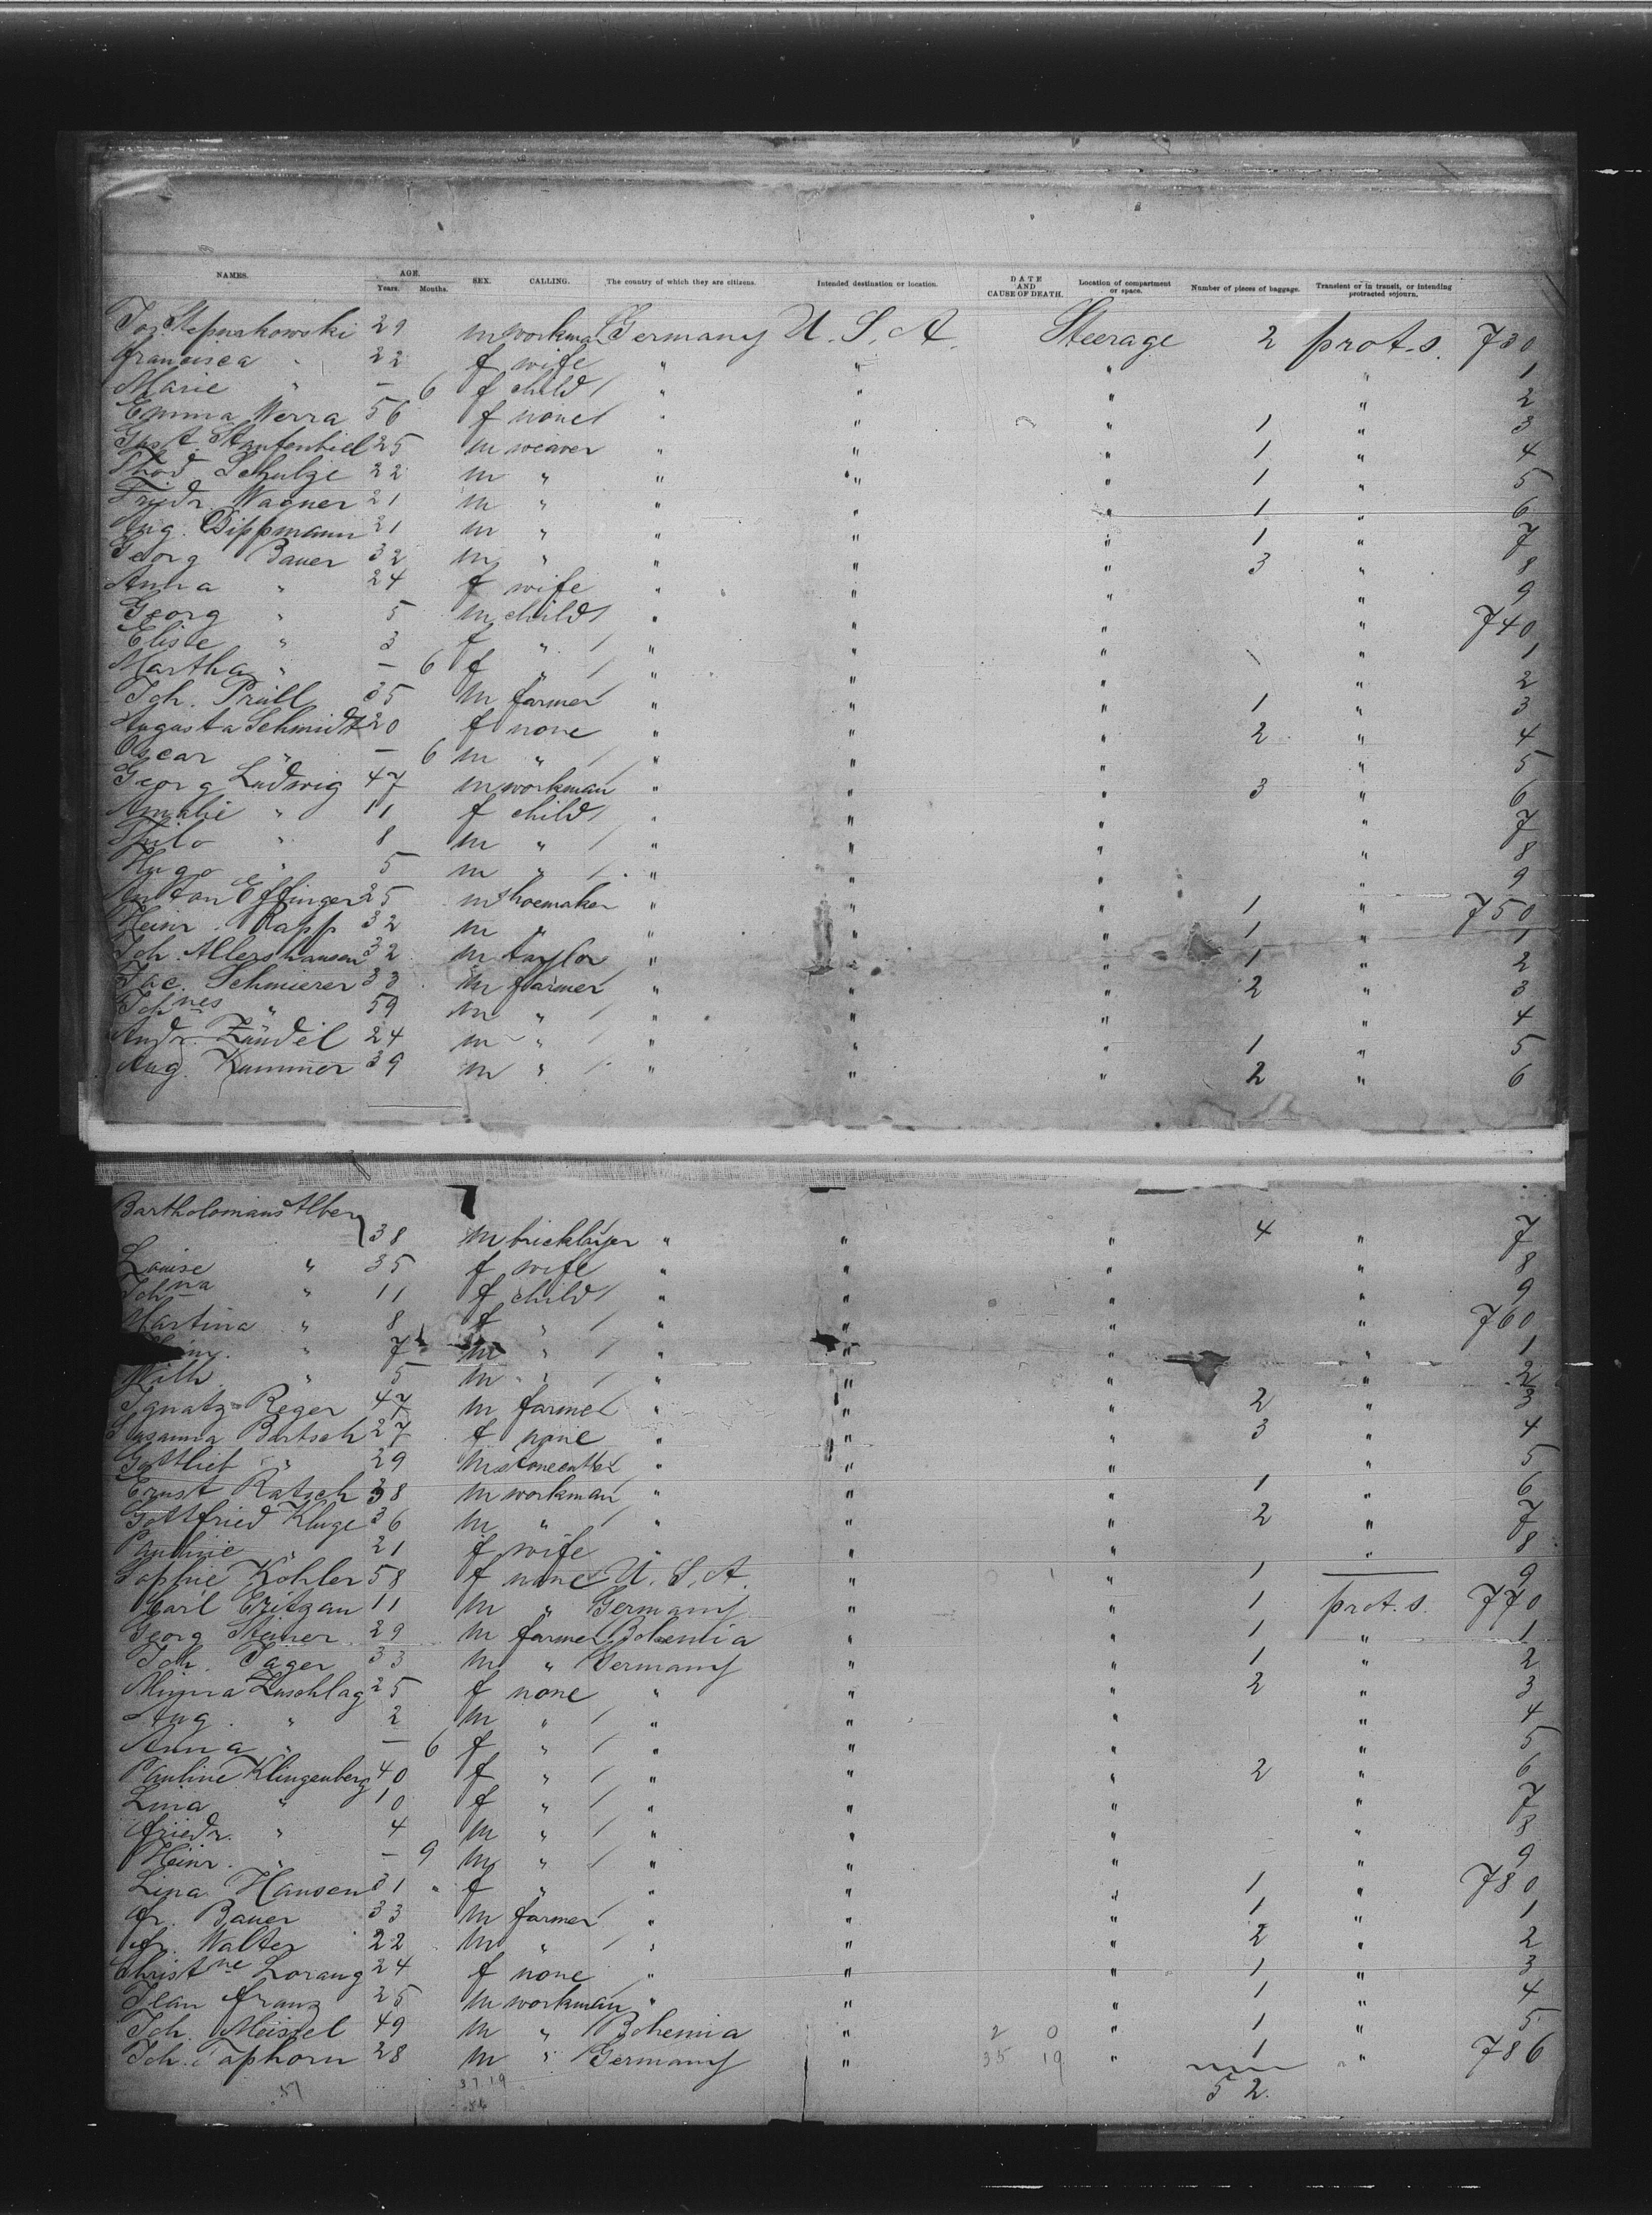 NAMES. AGE. Years. Months. SEX. CALLING. The country of which they are citizens. Intended destination or location. DATE AND CAUSE OF DEATH. Location of compartment or space. Number of pieces of baggage. Transient or in transit, or intending protracted sojourn.
Jos. 29 m workman Germany U. S. A. Steerage 2 prot. s. 730
Francisca " 22 f wife " " " " 1
Marie " – 6 f child " " " " 2
Emma Werra 56 f none " " " 1 " 3
Gust. 25 m weaver " " " 1 " 4
Schulze 22 m " " " " 1 " 5
Friedr. Wagner 21 m " " " " 1 " 6
Aug. Dippmann 21 m " " " " 1 " 7
Georg Bauer 32 m " " " " 3 " 8
Anna " 24 f wife " " " " 9
Georg " 5 m child " " " " 740
Elise " 3 f " " " " " 1
Martha " – 6 f " " " " " 2
Joh. Prüll 35 m farmer " " " 1 " 3
Augusta Schmidt 20 f none " " " 2 " 4
Oscar " – 6 m " " " " " 5
Georg Ludwig 47 m workman " " " 3 " 6
Amalie " 11 f child " " " " 7
Thilo " 8 m " " " " " 8
Hugo " 5 m " " " " " 9
Anton Effinger 25 m shoemaker " " " 1 " 750
Heinr. Rapp 32 m " " " " 1 " 1
Joh. Allershausen 32 m taylor " " " 1 " 2
Jac. Schmierer 33 m farmer " " " 2 " 3
Johnes " 59 m " " " " " 4
Andr. Zündel 24 m " " " " 1 " 5
Aug. Kummer 39 m " " " " 2 " 6
Bartholomäus Alber
38 m bricklayer " " " 4 " 7
Louise " 35 f wife " " " " 8
Johna " 11 f child " " " " 9
Martina " 8 f " " " " " 760
" 7 m " " " " " 1
Wilh. " 5 m " " " " " 2
Ignatz Reger 47 m farmer " " " 2 " 3
Susanna Bartsch 27 f none " " " 3 " 4
Gottlieb " 29 m stonecutter " " " " 5
Ernst Ratsch 38 m workman " " " 1 " 6
Gottfried Kluge 36 m " " " " 2 " 7
Pauline " 21 f wife " " " " 8
Sophie Kohler 58 f none U. S. A. " " 1 — 9
Carl Eritzau 11 m " Germany " " 1 prot. s. 770
Georg Steiner 29 m farmer Bohemia " " 1 " 1
Joh. Jager 33 m " Germany " " 1 " 2
Minna Zuschlag 25 f none " " " 2 " 3
Aug. " 2 m " " " " " 4
Anna " – 6 f " " " " " 5
Pauline Klingenberg 40 f " " " " 2 " 6
Lina " 10 f " " " " " 7
Friedr. " 4 m " " " " " 8
Heinr. " – 9 m " " " " " 9
Lina Hansen 31 " f " " " " 1 " 780
Fr. Bauer 33 m farmer " " " 1 " 1
Fr. Walter 22 m " " " " 2 " 2
Christne Lorang 24 f none " " " 1 " 3
Jean Franz 25 m workman " " " 1 " 4
Joh. Meissel 49 m " Bohemia " 2 0 " 1 " 5
Joh. Taphorn 28 m " Germany " 35 19 " 1 " 786
57 37 19 52.